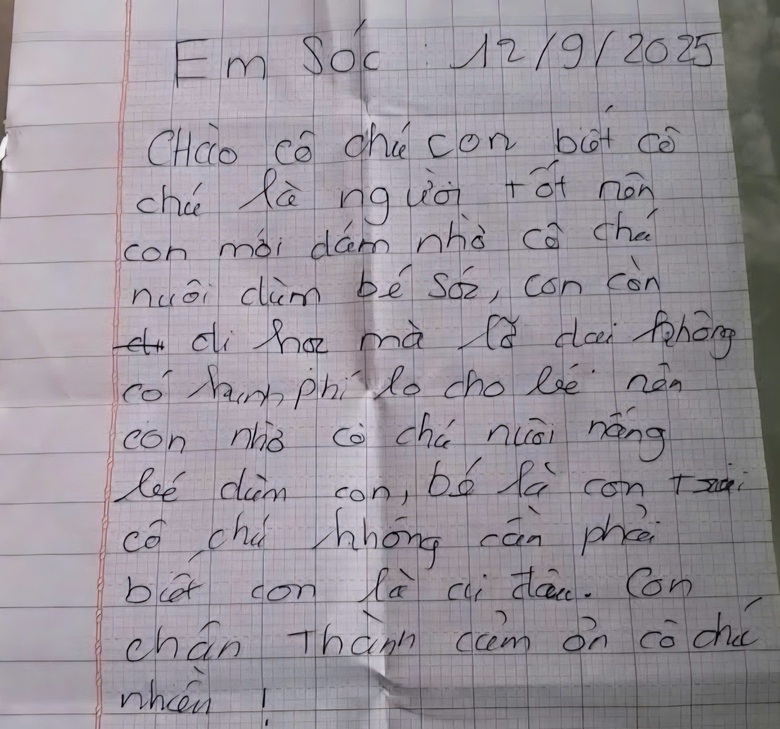 Em Sóc : 12/9/2025
CHào cô chú con biết cô
chú là người tốt nên
con mới dám nhờ cô chú
nuôi dùm bé Sóc, con còn
đi học mà lỡ dại không
có kinh phí lo cho bé nên
con nhờ cô chú nuôi nấng
bé dùm con, bé là con trai
cô chú không cần phải
biết con là ai đâu. Con
chân Thành cảm ơn cô chú
nhiều !